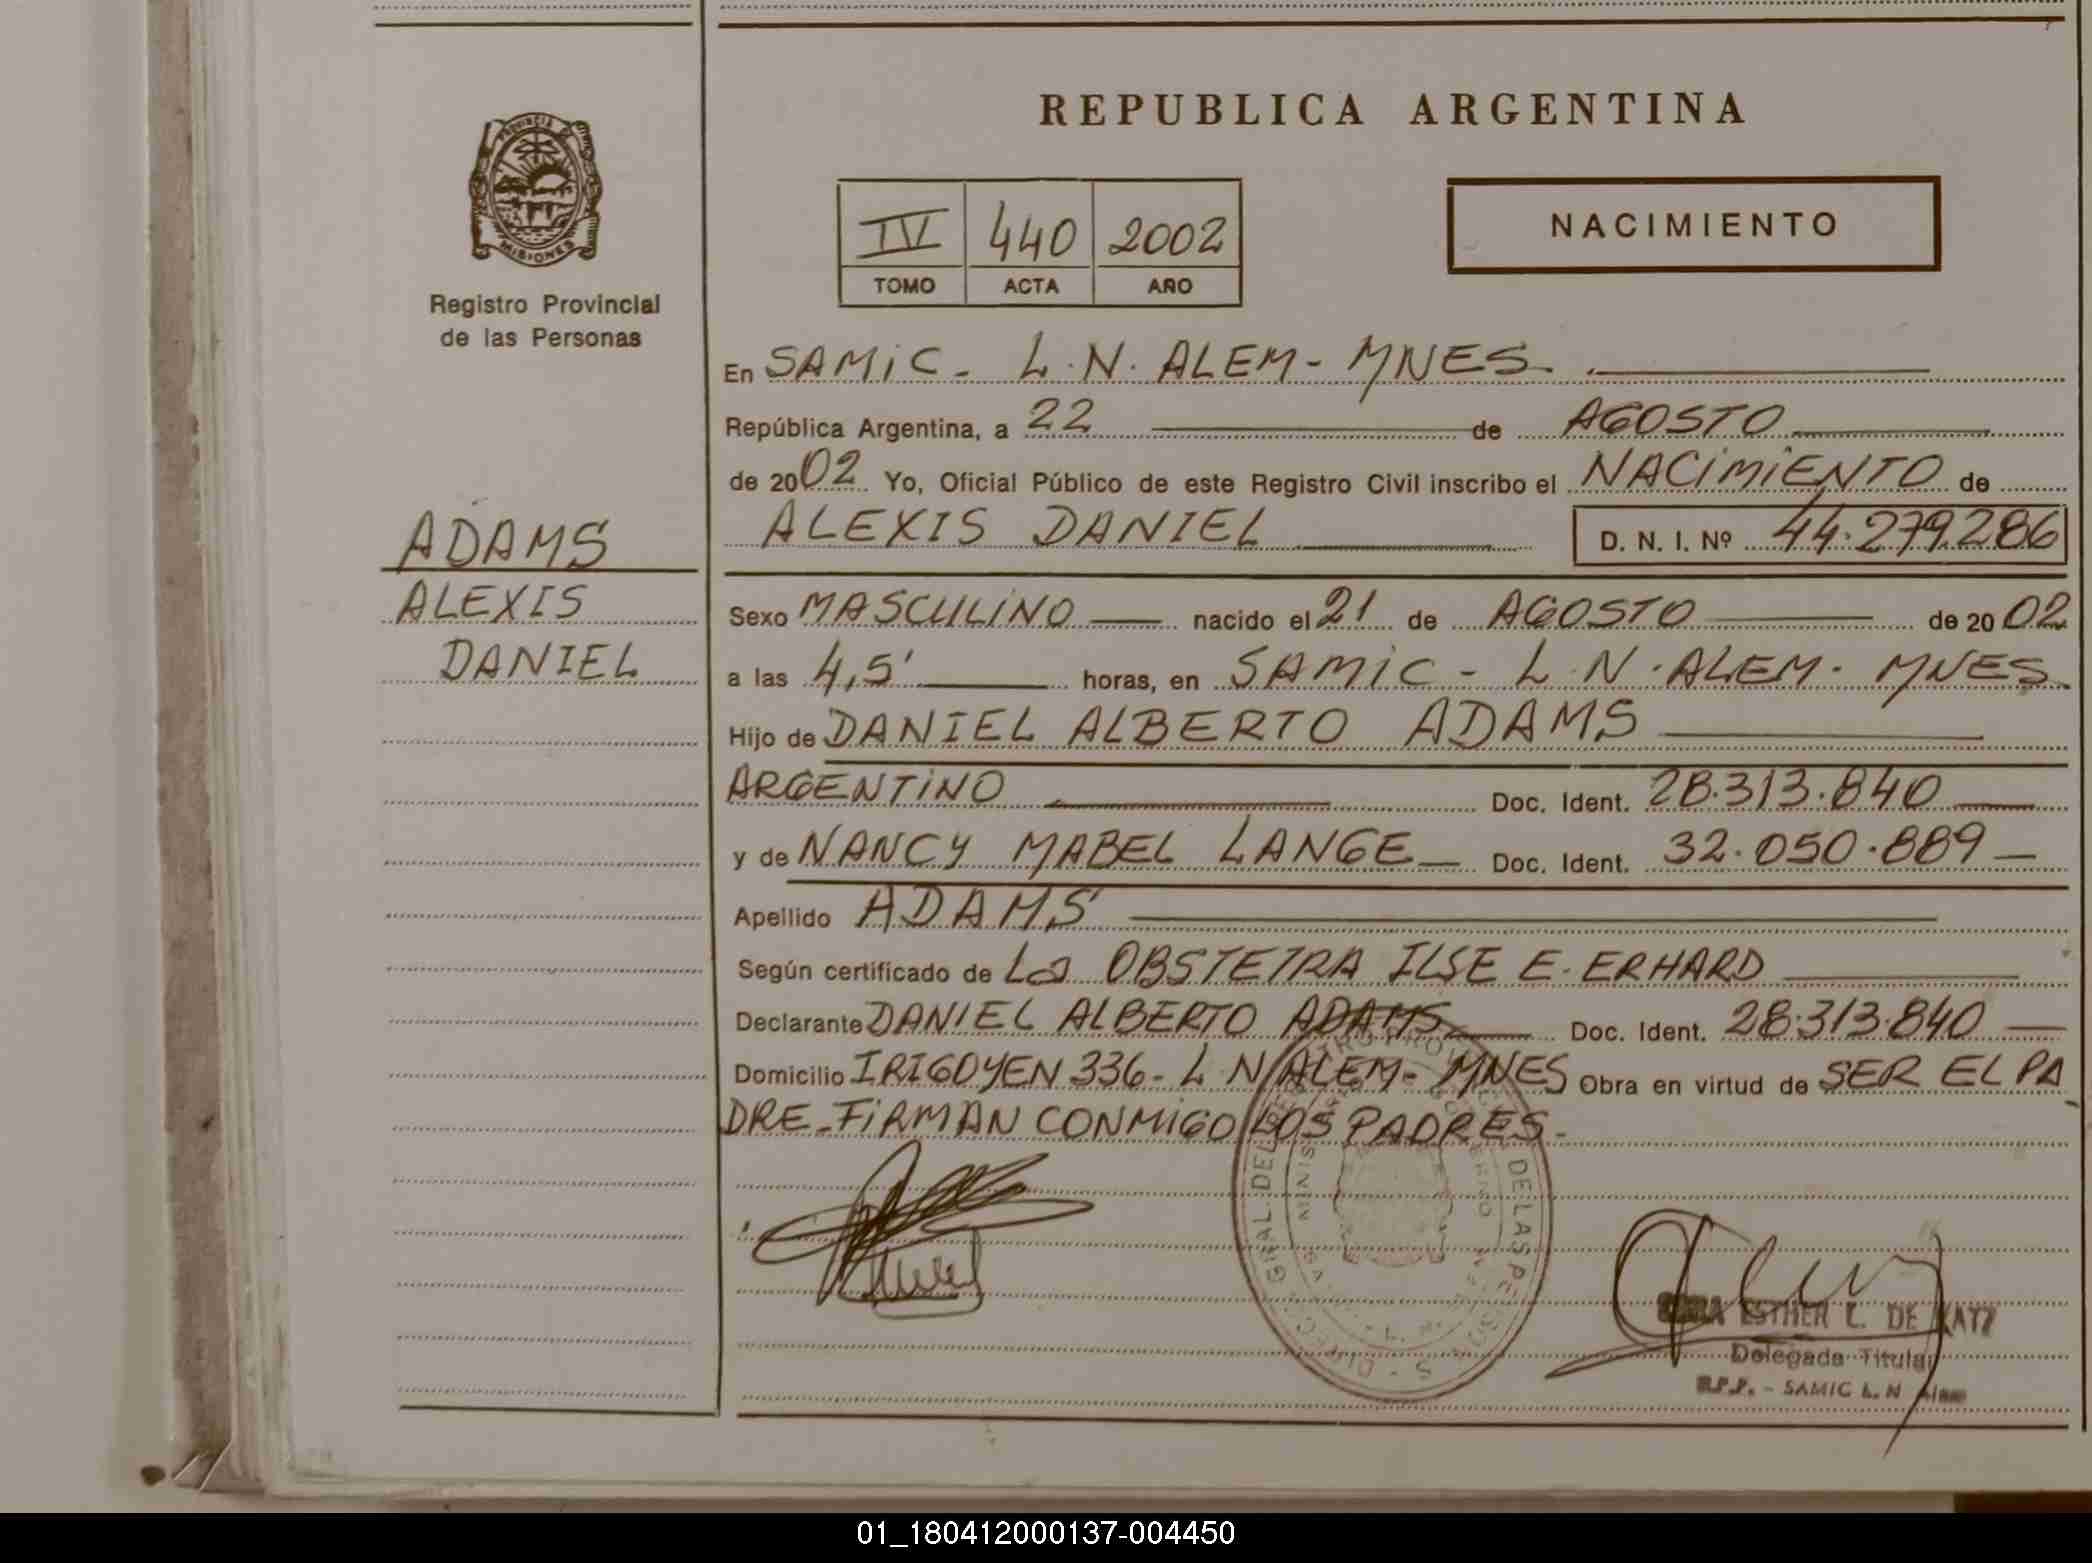 REPUBLICA ARGENTINA
PROVINCIA DE
MISIONES
Registro Provincial
de las Personas
IV 440 2002
TOMO ACTA AÑO
NACIMIENTO
En SAMIC - L.N. ALEM - MNES.
República Argentina, a 22 de AGOSTO
de 2002 Yo, Oficial Público de este Registro Civil inscribo el NACIMIENTO de
ALEXIS DANIEL D. N. I. Nº 44.279.286
ADAMS
ALEXIS
DANIEL
Sexo MASCULINO nacido el 21 de AGOSTO de 2002
a las 4,5' horas, en SAMIC - L.N. ALEM - MNES
Hijo de DANIEL ALBERTO ADAMS
ARGENTINO Doc. Ident. 28.313.840
y de NANCY MABEL LANGE Doc. Ident. 32.050.889
Apellido ADAMS
Según certificado de La OBSTETRA ILSE E. ERHARD
Declarante DANIEL ALBERTO ADAMS Doc. Ident. 28.313.840
Domicilio IRIGOYEN 336 - L N ALEM - MNES Obra en virtud de SER EL PA
DRE - FIRMAN CONMIGO LOS PADRES.
ESTHER L. DE KATZ
Delegada Titular
R.P.P. - SAMIC L.N. Alem
01_180412000137-004450